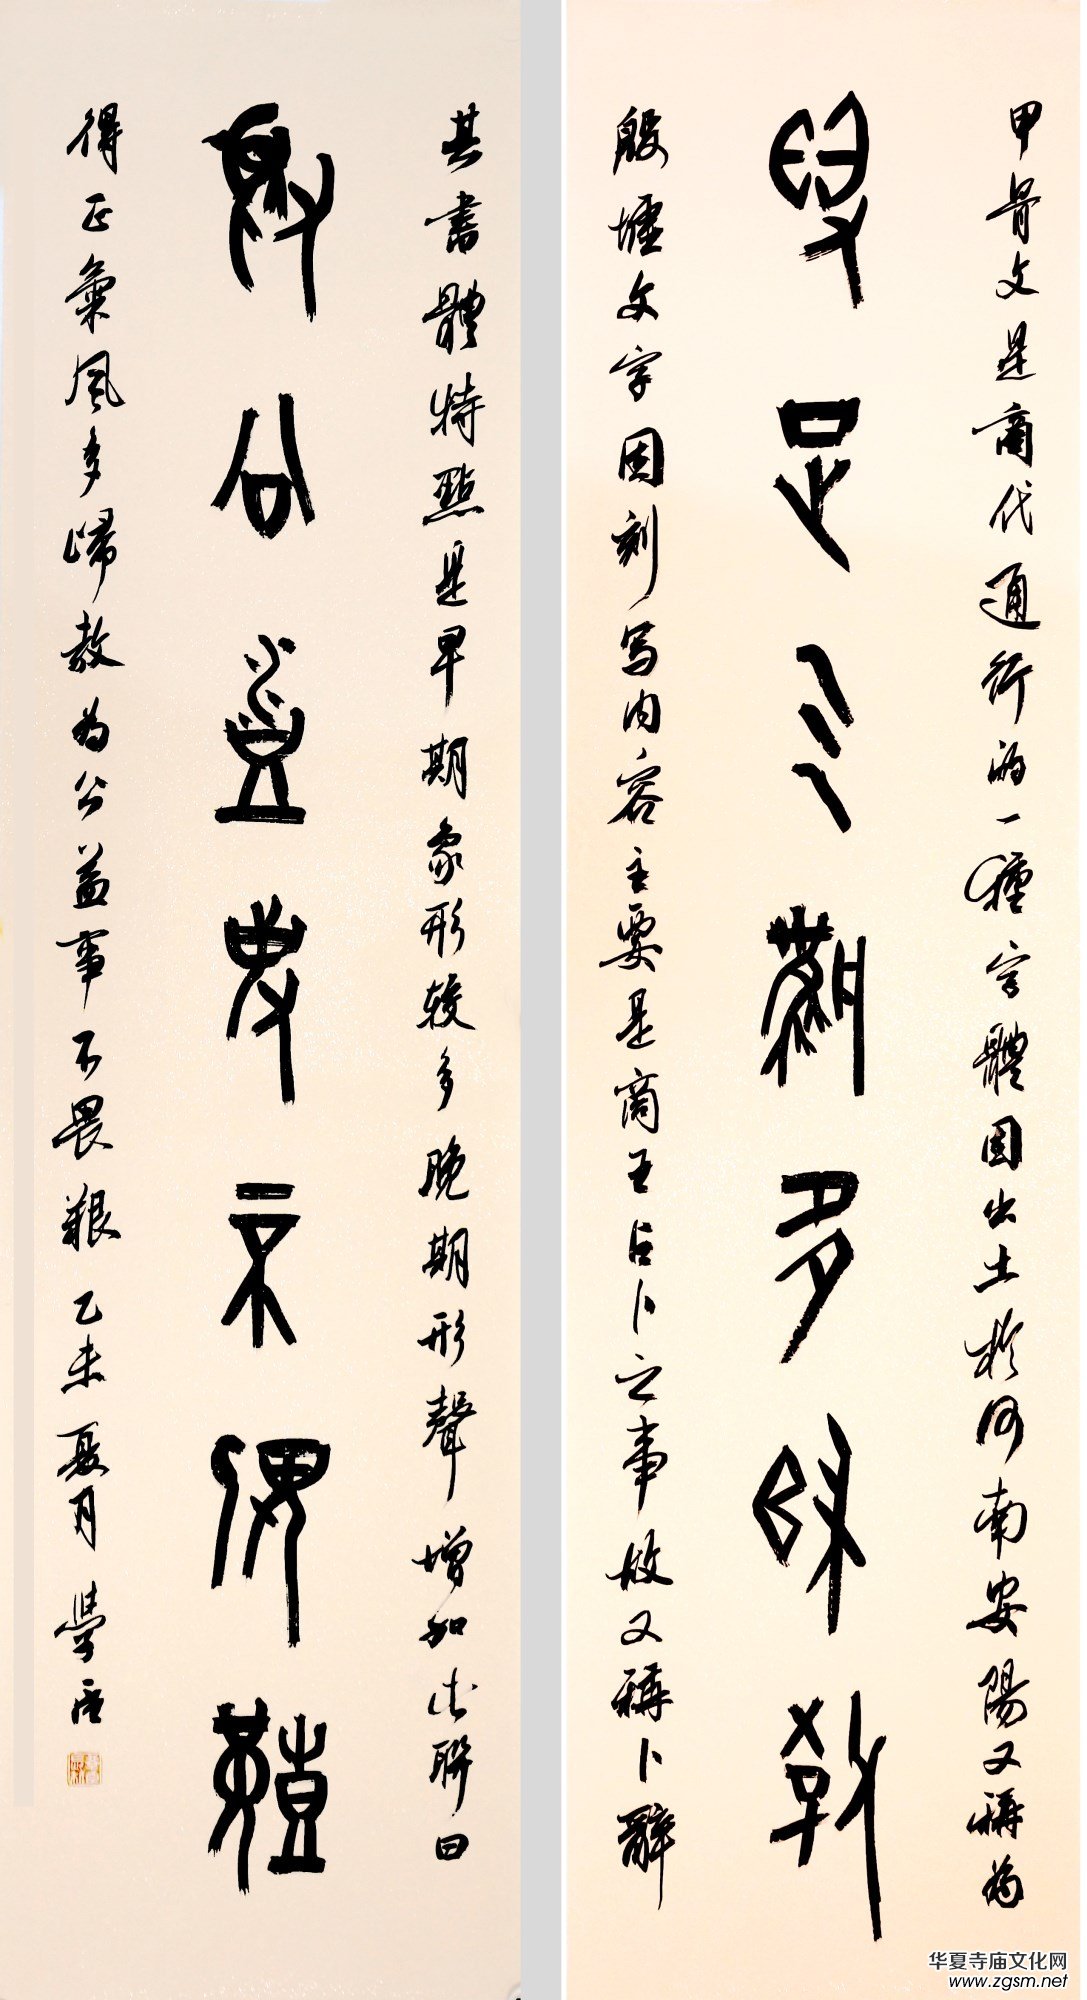 甲骨文是商代通行的一種字體因出土於河南安陽又稱為
得正氣風多歸教
殷墟文字因刻写内容主要是商王占卜之事故又稱卜辭
其書體特點是早期象形較多晚期形聲增加出聯曰
為公益事不畏艱
得正氣風多歸教為公益事不畏艱乙未夏月學
华夏寺庙文化网
www.zgsm.net